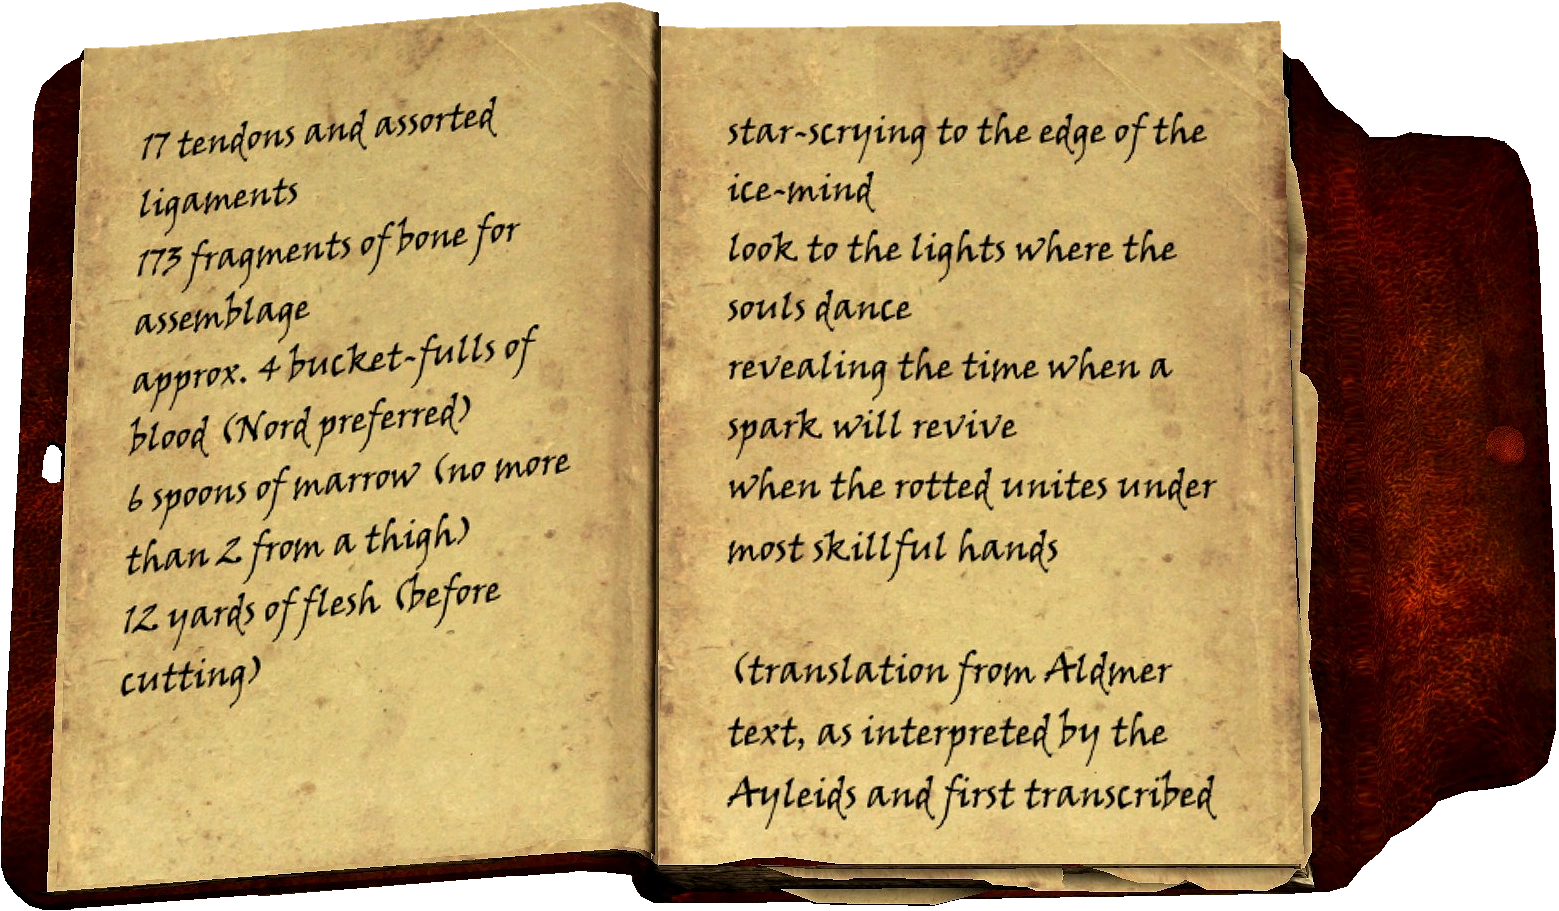 17 tendons and assorted
ligaments
173 fragments of bone for
assemblage
approx. 4 bucket-fulls of
blood (Nord preferred)
6 spoons of marrow (no more
than 2 from a thigh)
12 yards of flesh (before
cutting)
star-scrying to the edge of the
ice-mind
look to the lights where the
souls dance
revealing the time when a
spark will revive
when the rotted unites under
most skillful hands
(translation from Aldmer
text, as interpreted by the
Ayleids and first transcribed